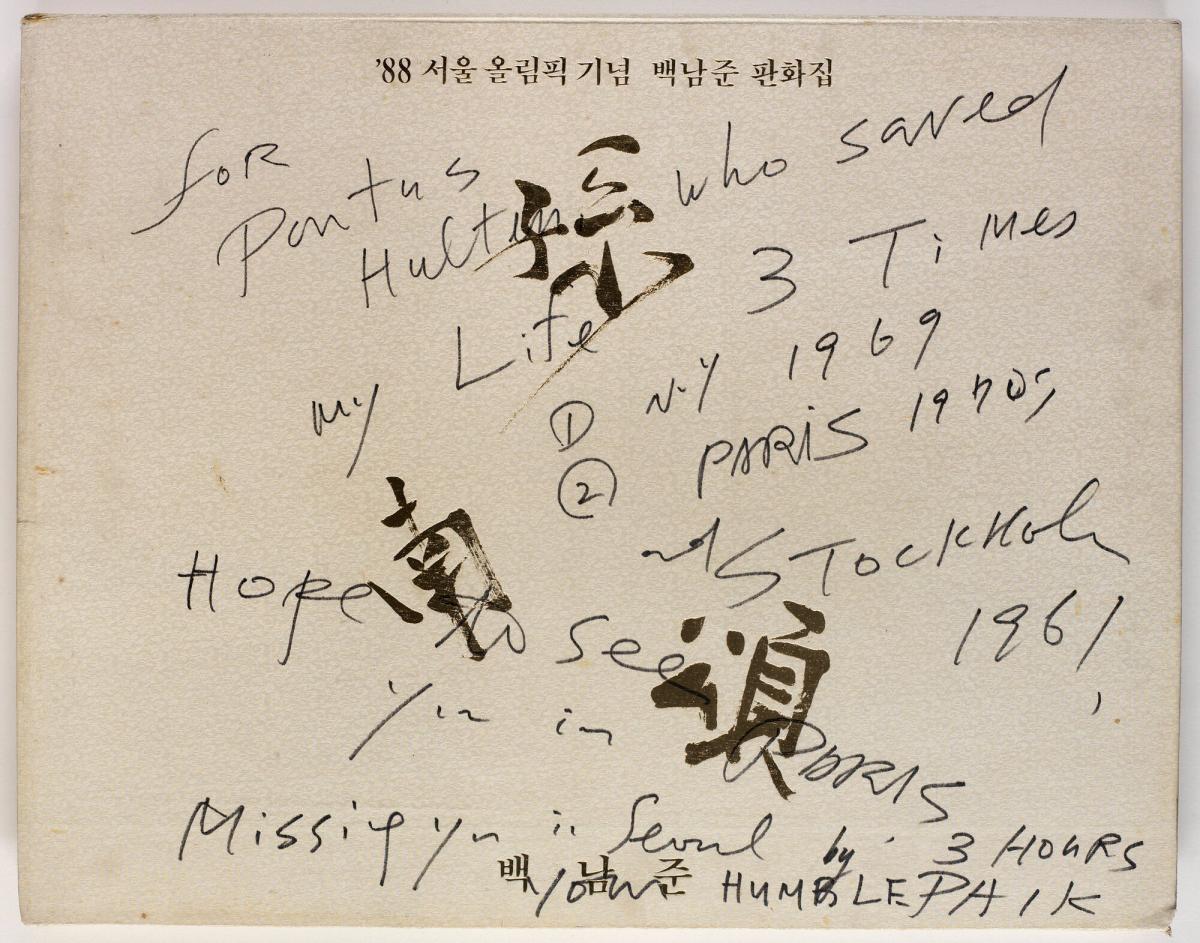 '88 서울 올림픽 기념 백남준 판화집
for Pontus Hultin who saved
my Life 3 Times
① N.Y 1969
② PARIS 1970s,
and STOCKHolm
1961,
HOPe to see
yu in PARIS
Missig yu in Seoul by 3 HOURS
your HUMBLE PAIK
南
백남준